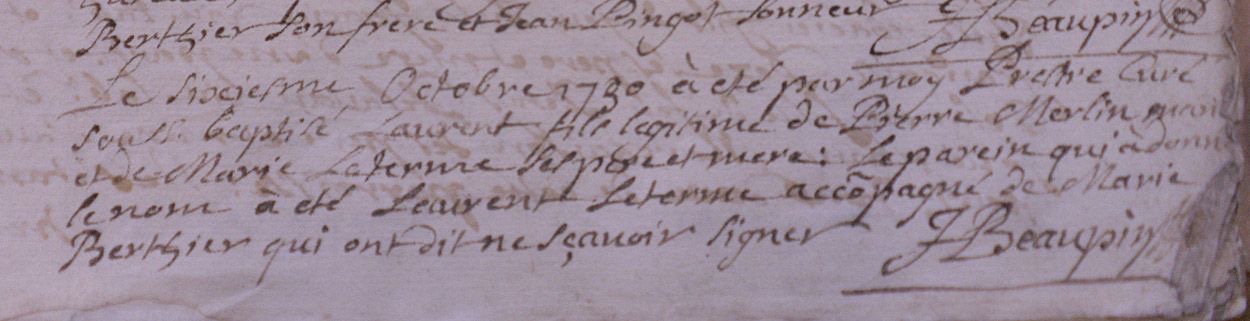 Berthier son frere et Jean Pingot sonneur JBeaupin
Le sixiesme Octobre 1730 à eté par moy Prestre Curé
souss. baptisé Laurent fils legitime de Pierre Merlin
et de Marie Leterme ses pere et mere: le parein qui à donn
le nom à eté Laurent Leterme accõpagné de Marie
Berthier qui ont dit ne sçavoir signer JBeaupin